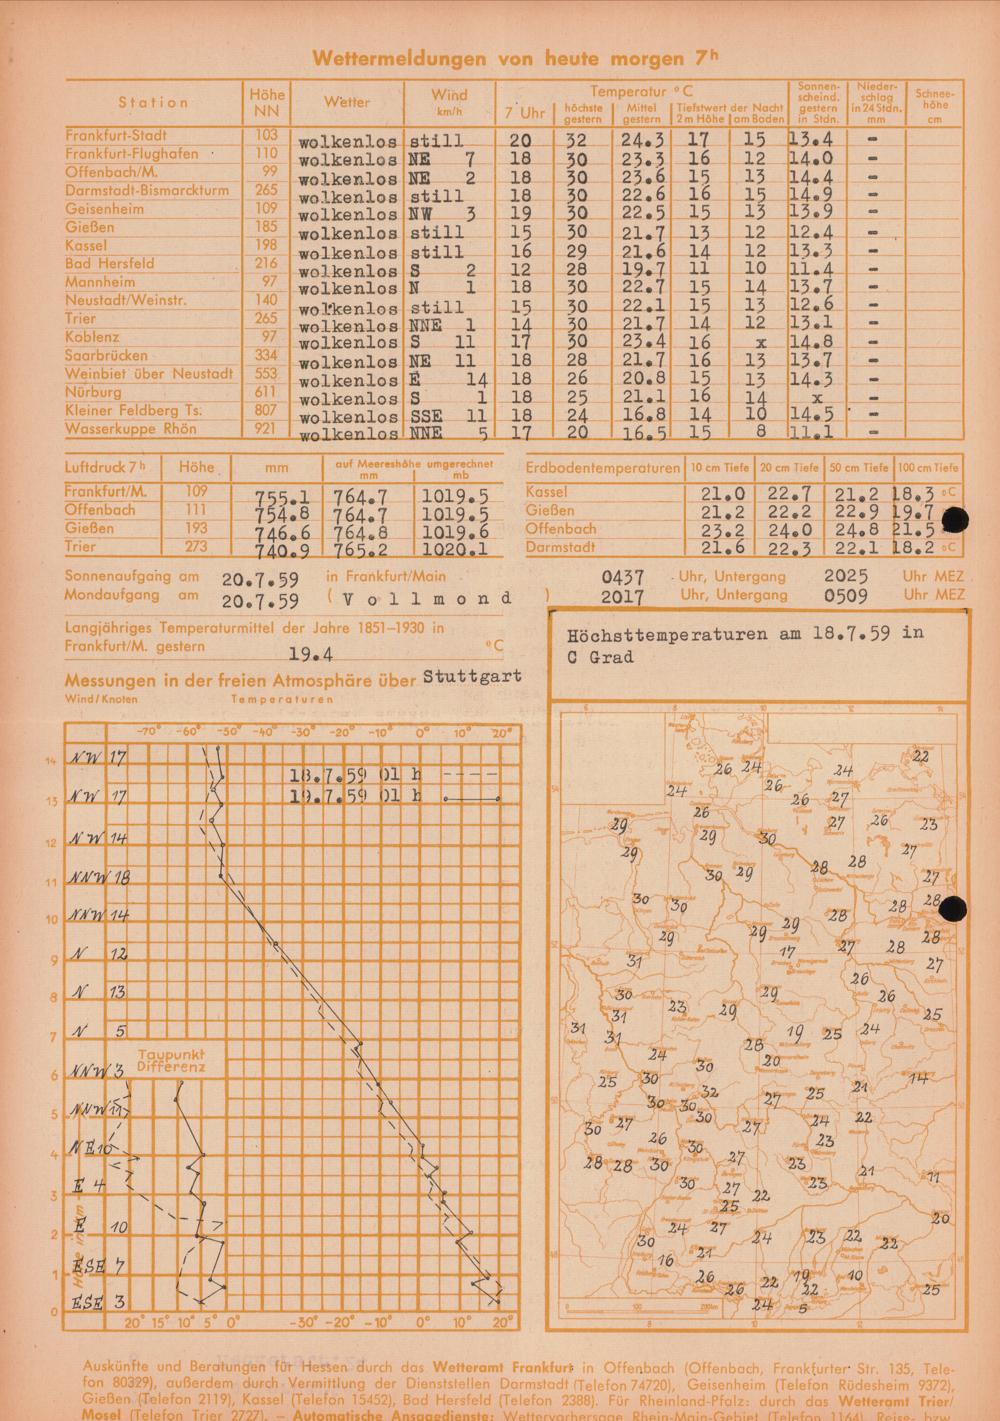 Wettermeldungen von heute morgen 7h
Station Höhe NN Wetter Wind km/h Temperatur °C Sonnenscheind. gestern in Stdn. Niederschlag in 24 Stdn. mm Schneehöhe cm
7 Uhr höchste gestern Mittel gestern Tiefstwert der Nacht 2 m Höhe am Boden
Frankfurt-Stadt 103 wolkenlos still 20 32 24.3 17 15 13.4 -
Frankfurt-Flughafen 110 wolkenlos NE 7 18 30 23.3 16 12 14.0 -
Offenbach/M. 99 wolkenlos NE 2 18 30 23.6 15 13 14.4 -
Darmstadt-Bismarckturm 265 wolkenlos still 18 30 22.6 16 15 14.9 -
Geisenheim 109 wolkenlos NW 3 19 30 22.5 15 13 13.9 -
Gießen 185 wolkenlos still 15 30 21.7 13 12 12.4 -
Kassel 198 wolkenlos still 16 29 21.6 14 12 13.3 -
Bad Hersfeld 216 wolkenlos S 2 12 28 19.7 11 10 11.4 -
Mannheim 97 wolkenlos N 1 18 30 22.7 15 14 13.7 -
Neustadt/Weinstr. 140 wolkenlos still 15 30 22.1 15 13 12.6 -
Trier 265 wolkenlos NNE 1 14 30 21.7 14 12 13.1 -
Koblenz 97 wolkenlos S 11 17 30 23.4 16 x 14.8 -
Saarbrücken 334 wolkenlos NE 11 18 28 21.7 16 13 13.7 -
Weinbiet über Neustadt 553 wolkenlos E 14 18 26 20.8 15 13 14.3 -
Nürburg 611 wolkenlos S 1 18 25 21.1 16 14 x -
Kleiner Feldberg Ts. 807 wolkenlos SSE 11 18 24 16.8 14 10 14.5 -
Wasserkuppe Rhön 921 wolkenlos NNE 5 17 20 16.5 15 8 11.1 -
Luftdruck 7h Höhe mm auf Meereshöhe umgerechnet mm mb
Frankfurt/M. 109 755.1 764.7 1019.5
Offenbach 111 754.8 764.7 1019.5
Gießen 193 746.6 764.8 1019.6
Trier 273 740.9 765.2 1020.1
Erdbodentemperaturen 10 cm Tiefe 20 cm Tiefe 50 cm Tiefe 100 cm Tiefe
Kassel 21.0 22.7 21.2 18.3 °C
Gießen 21.2 22.2 22.9 19.7
Offenbach 23.2 24.0 24.8 21.5
Darmstadt 21.6 22.3 22.1 18.2 °C
Sonnenaufgang am 20.7.59 in Frankfurt/Main 0437 Uhr, Untergang 2025 Uhr MEZ
Mondaufgang am 20.7.59 ( Vollmond ) 2017 Uhr, Untergang 0509 Uhr MEZ
Langjähriges Temperaturmittel der Jahre 1851–1930 in
Frankfurt/M. gestern 19.4 °C
Messungen in der freien Atmosphäre über Stuttgart
Wind/Knoten Temperaturen
-70° -60° -50° -40° -30° -20° -10° 0° 10° 20°
18.7.59 01 h
19.7.59 01 h
14 NW 17
13 NW 17
12 NW 14
11 NNW 18
10 NNW 14
9 N 12
8 N 13
7 N 5
Taupunkt
Differenz
6 NNW 3
5 NNW 11
4 NE 10
3 E 4
2 E 10
1 ESE 7
0 ESE 3
Höhe in km
20° 15° 10° 5° 0° -30° -20° -10° 0° 10° 20°
Höchsttemperaturen am 18.7.59 in
C Grad
26 24 24 22
24 26 26 27
26 27 26 23
29 29 30
29 30 29 28 28 27 27
30 30 28 28 28
29 29 29 27 28 28
31 17 27
30 23 29 29 26 26
31 31 19 25 24 25
24 28 20
25 30 30 32 27 25 21 14
30 30 30
30 27 27 24 22
26 30 23
28 28 30 27 23 21 11
30 27 22 23
25 20
24 27 24 23 22 22
30 16 21
26 26 22 19 22 10 25
24 5
0 100 200km
Auskünfte und Beratungen für Hessen durch das Wetteramt Frankfurt in Offenbach (Offenbach, Frankfurter Str. 135, Tele-
fon 80329), außerdem durch Vermittlung der Dienststellen Darmstadt (Telefon 74720), Geisenheim (Telefon Rüdesheim 9372),
Gießen (Telefon 2119), Kassel (Telefon 15452), Bad Hersfeld (Telefon 2388). Für Rheinland-Pfalz: durch das Wetteramt Trier/
Mosel (Telefon Trier 2727). — Automatische Ansagedienste: Wettervorhersage Rhein-Main-Gebiet (Telefon 1164), Reise-